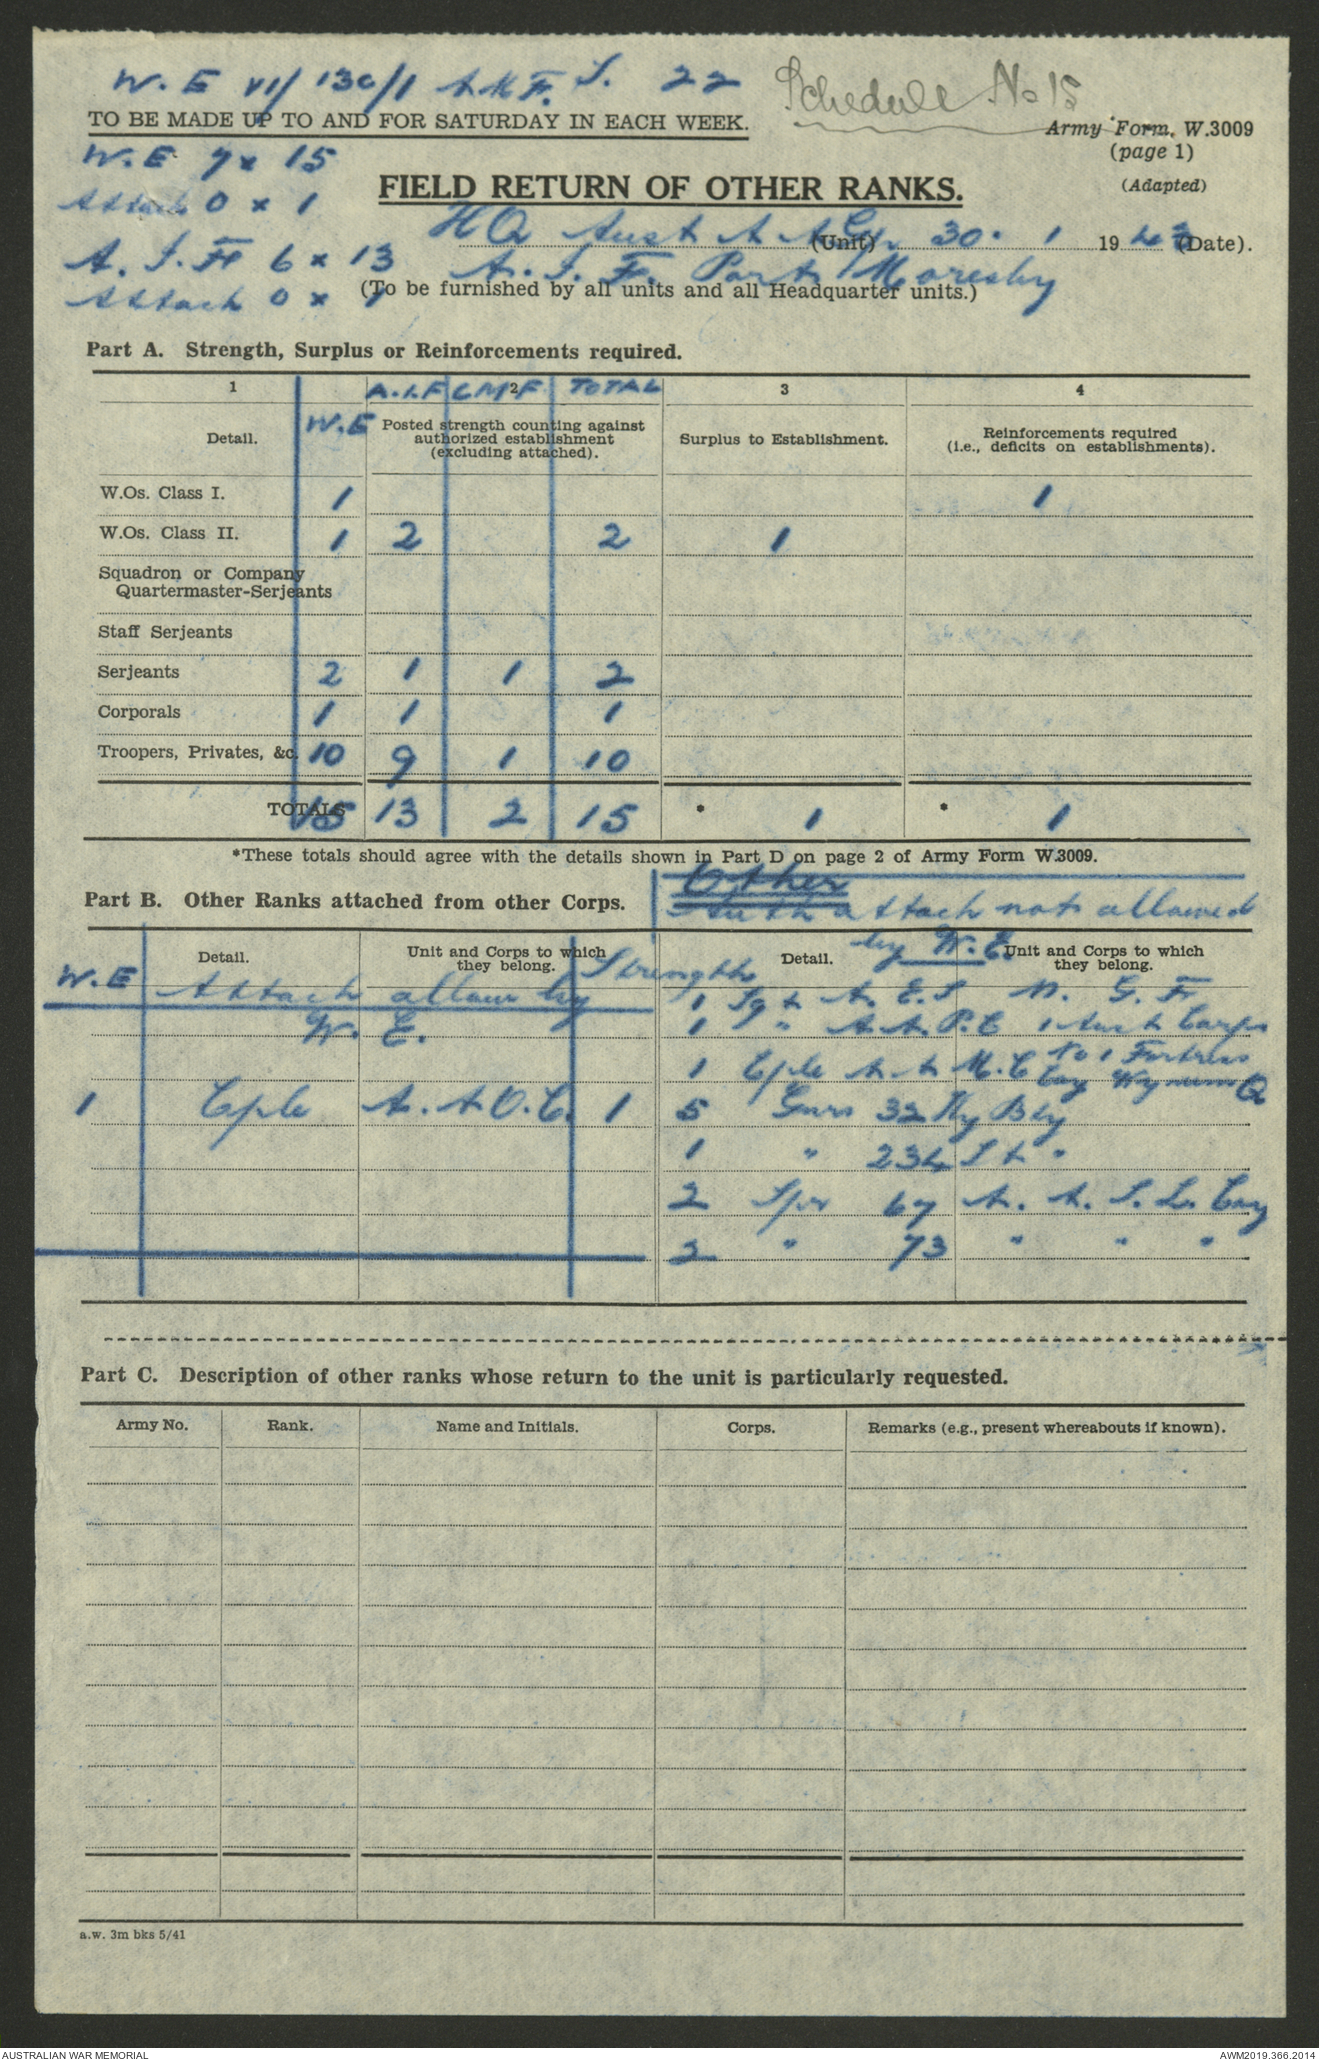 W.E VI/130/1 A.M.F. S. 22
Schedule No 15
TO BE MADE UP TO AND FOR SATURDAY IN EACH WEEK.
Army Form. W.3009
(page 1)
(Adapted)
W.E 7 x 15
Attach 0 x 1
FIELD RETURN OF OTHER RANKS.
HQ Aust A A (Unit) 30. 1 1943 (Date).
A.I.F 6 x 13
A. I. F. Port Moresby
Attach 0 x 1
(To be furnished by all units and all Headquarter units.)
Part A. Strength, Surplus or Reinforcements required.
1 A.I.F CMF 2 TOTAL 3 4
Detail. W.E Posted strength counting against authorized establishment (excluding attached). Surplus to Establishment. Reinforcements required (i.e., deficits on establishments).
W.Os. Class I. 1 1
W.Os. Class II. 1 2 2 1
Squadron or Company
Quartermaster-Serjeants
Staff Serjeants
Serjeants 2 1 1 2
Corporals 1 1 1
Troopers, Privates, &c. 10 9 1 10
TOTALS 15 13 2 15 * 1 * 1
*These totals should agree with the details shown in Part D on page 2 of Army Form W.3009.
Other
Part B. Other Ranks attached from other Corps.
attach not allowed
by W.E.
W.E Detail. Unit and Corps to which they belong. Strength Detail. Unit and Corps to which they belong.
Attach allow by
W. E.
1 Sgt A. E. S N. G. F
1 " A. A. P. C 1 Aust Corps
1 Cple A A M. C to 1 Fortress
Coy Wynnum Q
1 Cple A. A O. C. 1
5 Gnrs 32 Hy Bty
1 " 234 S L "
2 Spr 67 A. A. S. L. Coy
2 " 73 " " "
Part C. Description of other ranks whose return to the unit is particularly requested.
Army No. Rank. Name and Initials. Corps. Remarks (e.g., present whereabouts if known).
a.w. 3m bks 5/41
AUSTRALIAN WAR MEMORIAL
AWM2019.366.2014